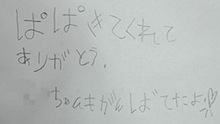 ぱぱきてくれて
ありがとう。
ちゃんもがんばてたよ♡